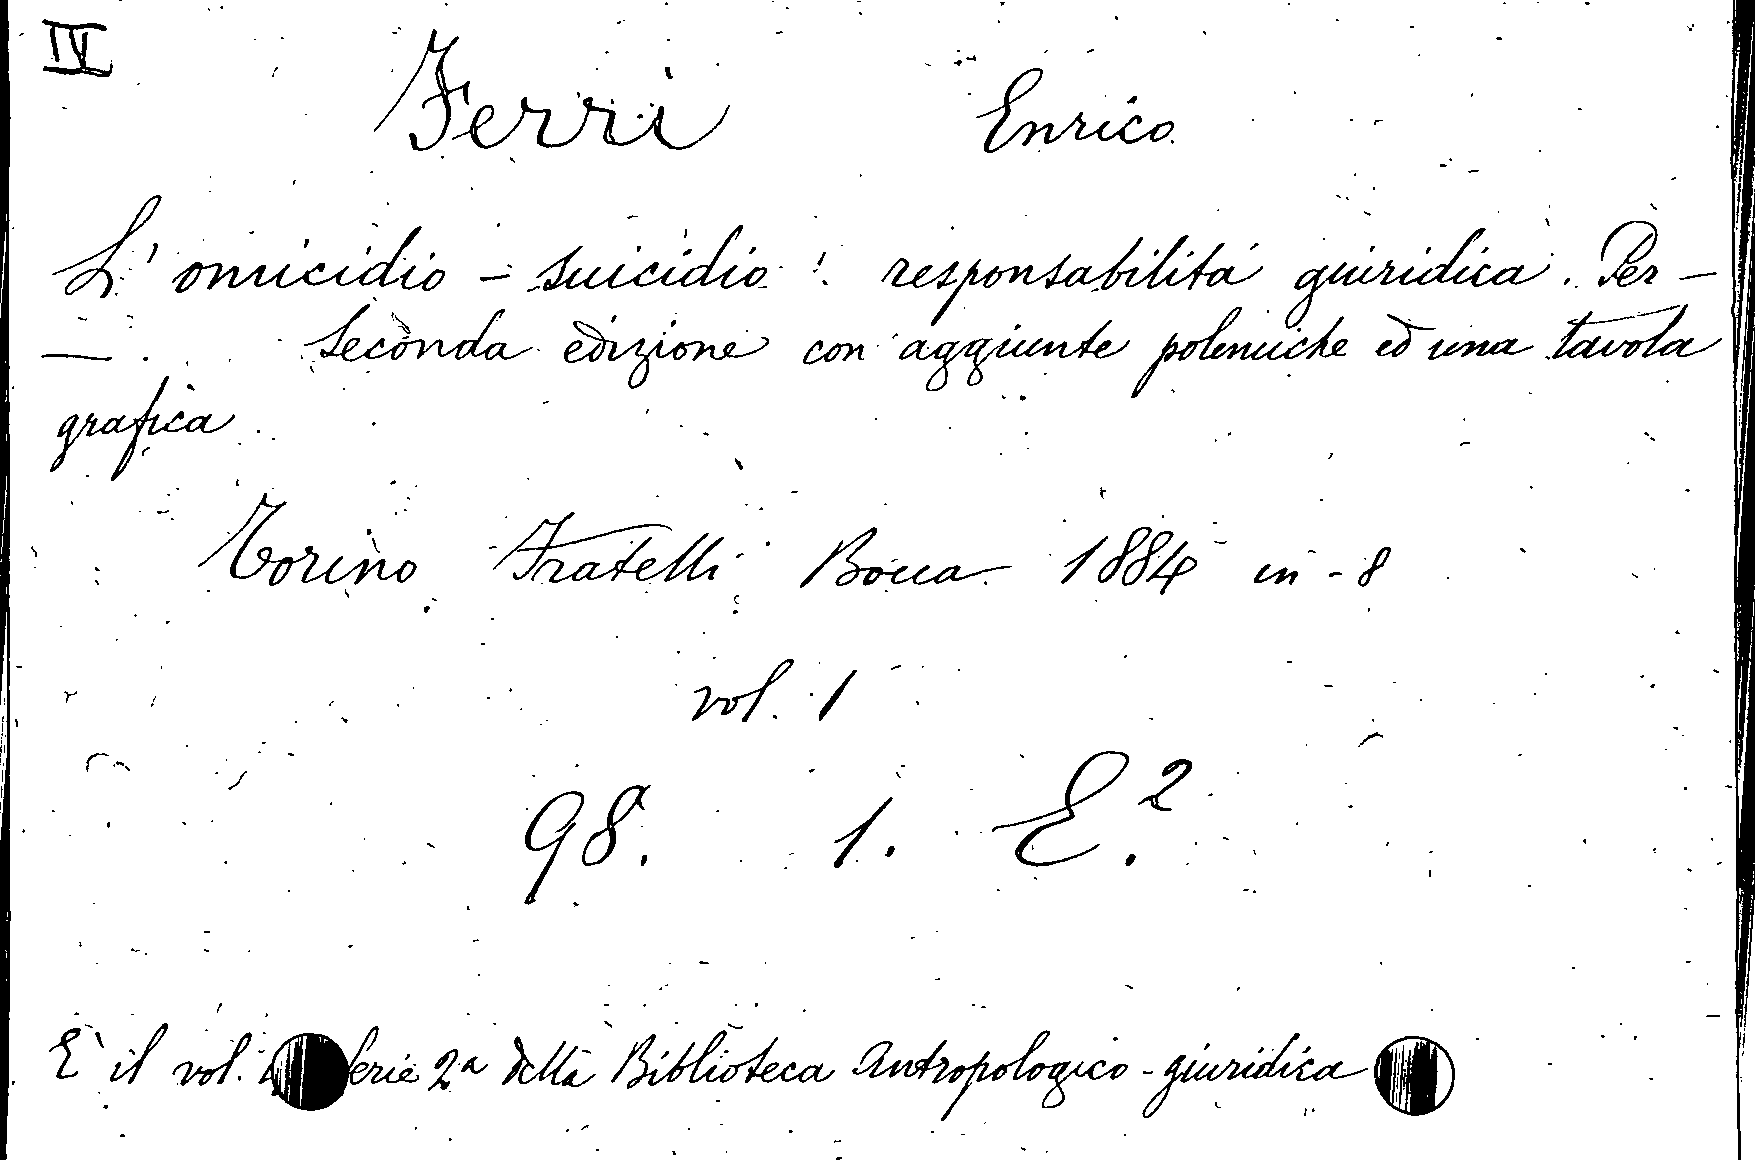 IV
Ferri Enrico
L'omicidio - suicidio : responsabilità giuridica. Per -
— . seconda edizione con aggiunte polemiche ed una tavola
grafica
Torino Fratelli Bocca 1884 in - 8
vol. 1
98. 1. E.²
È il vol. serie 2ª della Biblioteca Antropologico - giuridica